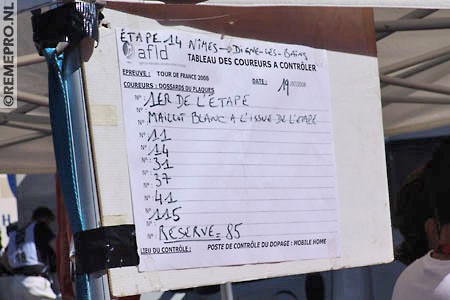 ETAPE 14 NIMES → DIGNE-LES-BAINS
afld
TABLEAU DES COUREURS A CONTRÔLER
EPREUVE : TOUR DE FRANCE 2008
DATE : 19
COUREURS : DOSSARDS OU PLAQUES
N° 1ER DE L'ETAPE
N° MAILLOT BLANC A L'ISSUE DE L'ETAPE
N° 11
N° : 14
N° : 31
N° : 37
N° : 41
N° : 115
N° RESERVE = 85
LIEU DU CONTRÔLE : POSTE DE CONTRÔLE DU DOPAGE : MOBILE HOME
©REMEPRO.NL